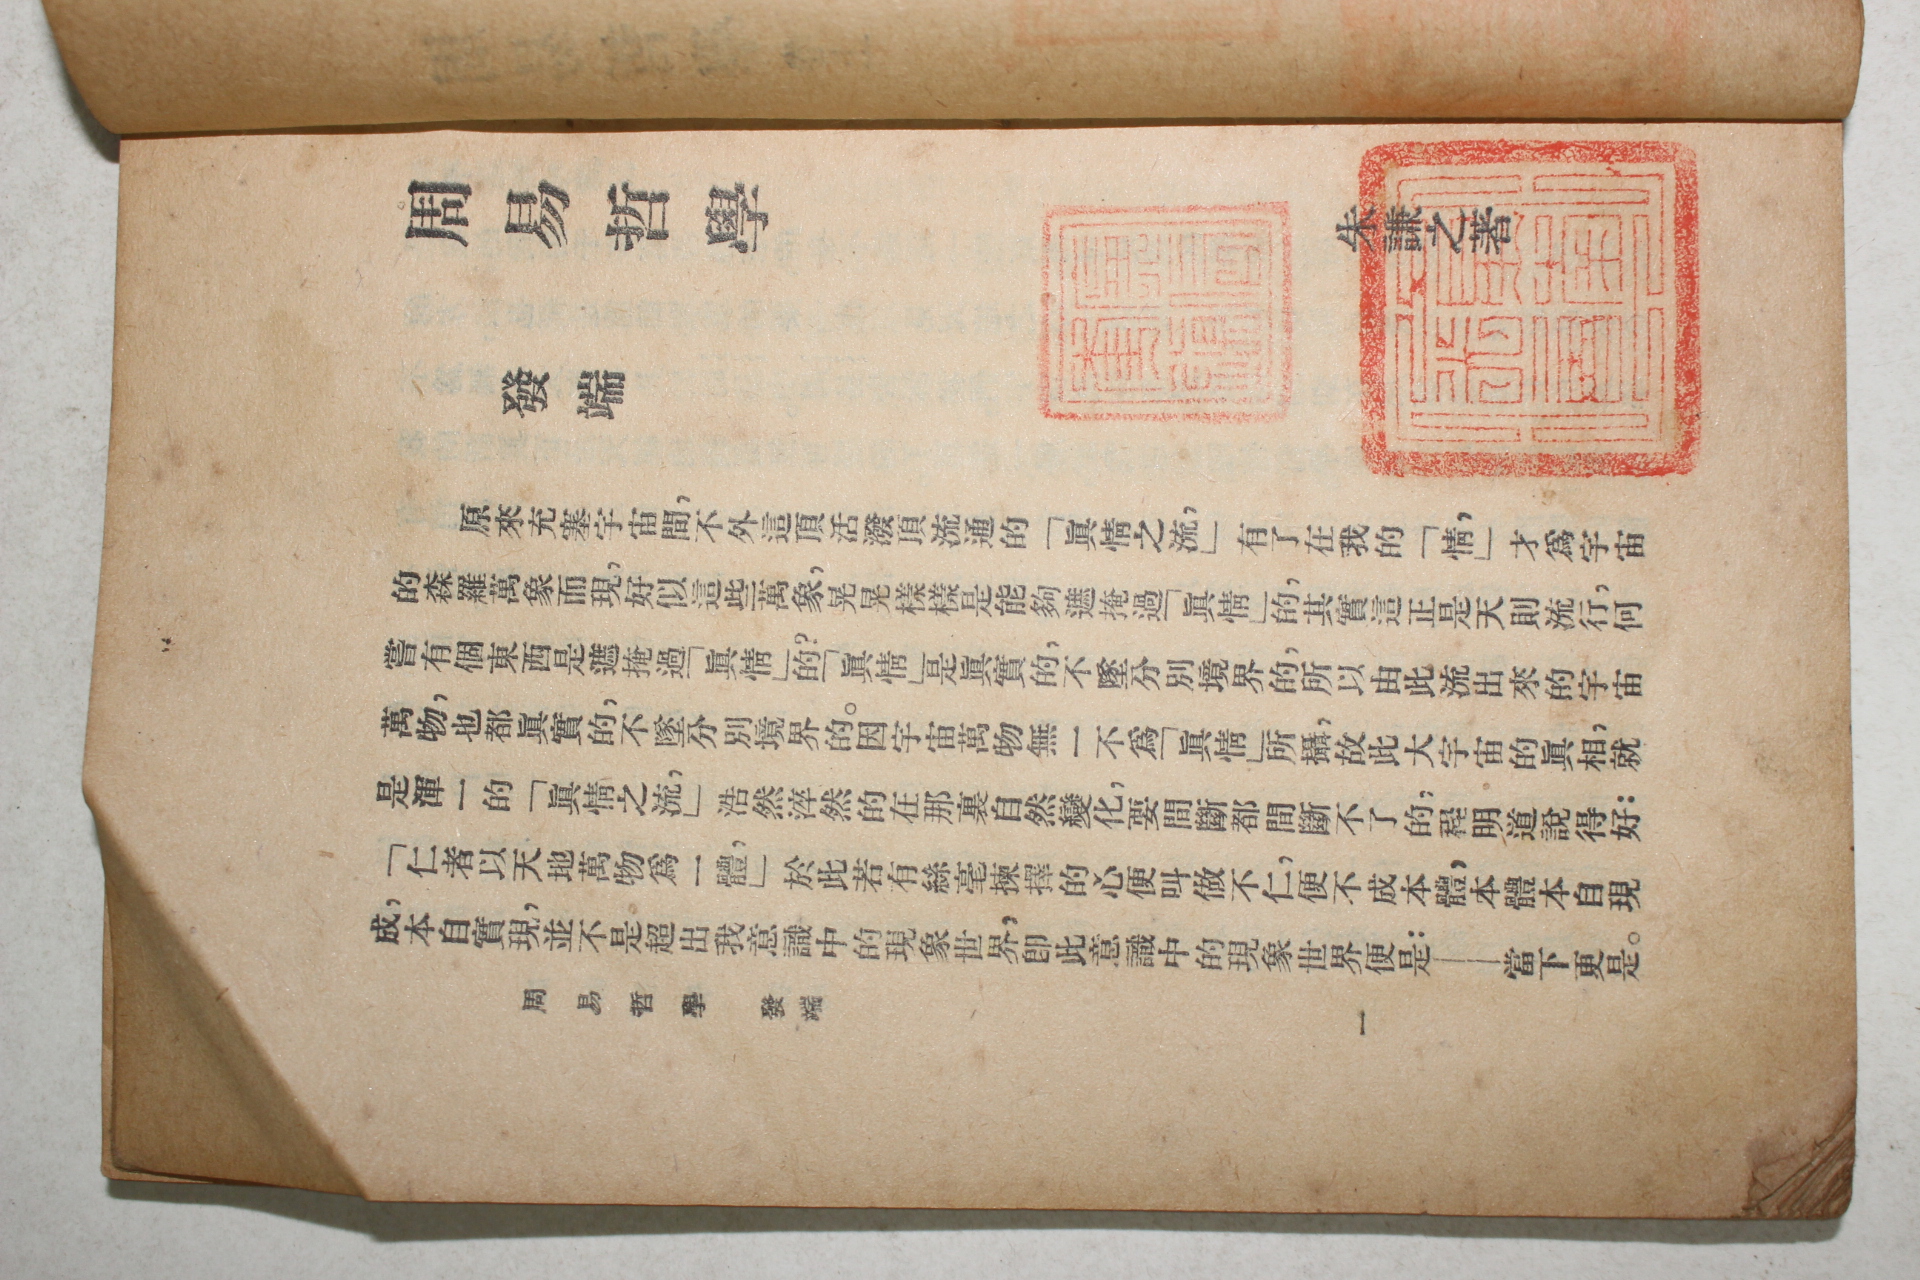 周易哲學
朱謙之著
發端
原來充塞宇宙間，不外這頂活潑頂流通的「眞情之流，」有了在我的「情，」才爲宇宙
的森羅萬象而現，好似這些萬象，晃晃樣樣是能夠遮掩過「眞情」的，其實這正是天則流行，何
嘗有個東西是遮掩過「眞情」的？「眞情」是眞實的，不墜分別境界的，所以由此流出來的宇宙
萬物，也都眞實的，不墜分別境界的。因宇宙萬物無一不爲「眞情」所攝，故此大宇宙的眞相，就
是渾一的「眞情之流，」浩然淬然的在那裏自然變化，要間斷都間斷不了的，程明道說得好：
「仁者以天地萬物爲一體，」於此若有絲毫揀擇的心便叫做不仁，便不成本體，本體本自現
成，本自實現，並不是超出我意識中的現象世界，卽此意識中的現象世界便是：——當下更是。
周易哲學　發端
一